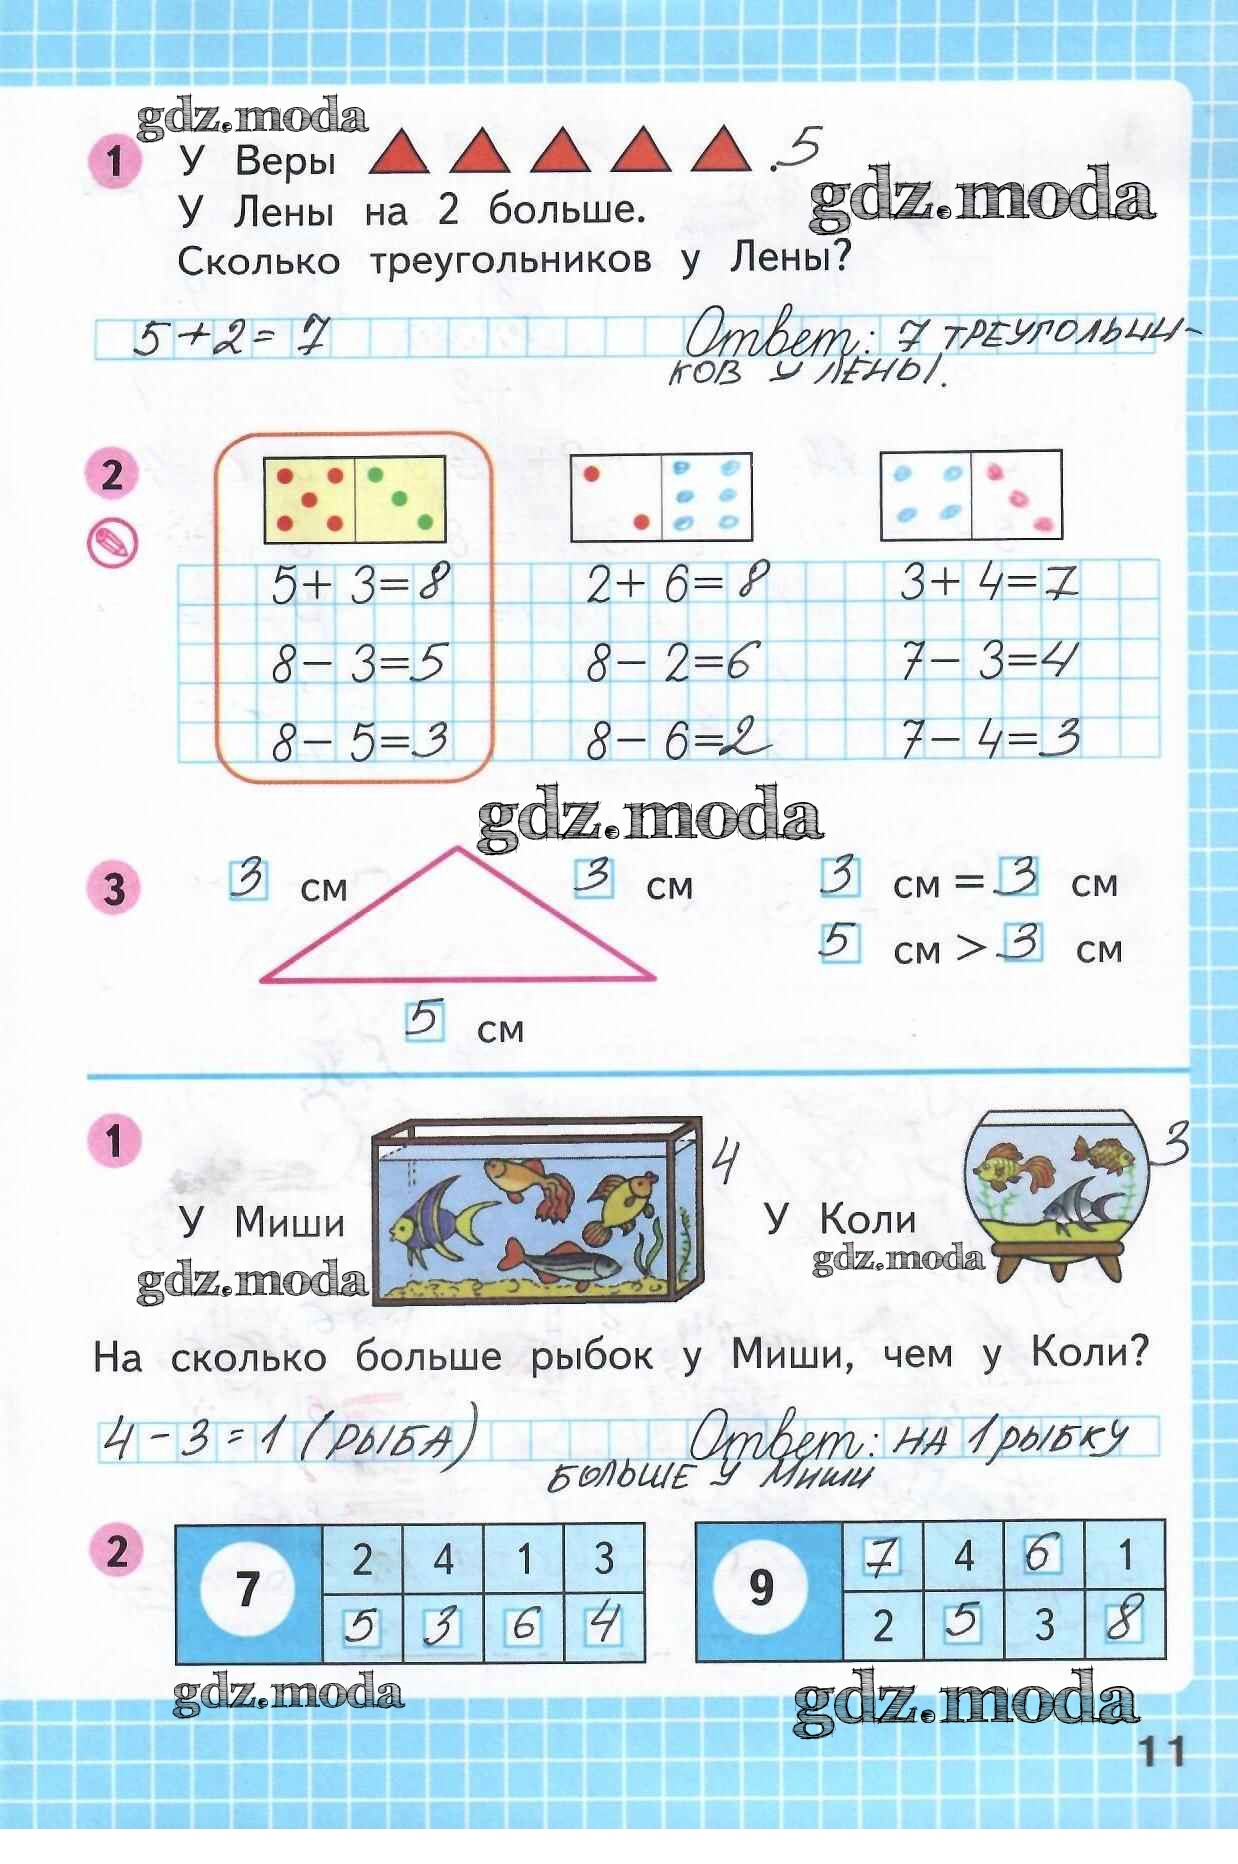 gdz.moda
1 У Веры . 5
gdz.moda
У Лены на 2 больше.
Сколько треугольников у Лены?
5+2=7 Ответ: 7 ТРЕУГОЛЬНИ-
КОВ У ЛЕНЫ.
2
5+3=8 2+6=8 3+4=7
8-3=5 8-2=6 7-3=4
8-5=3 8-6=2 7-4=3
gdz.moda
3 3 см 3 см 3 см = 3 см
5 см > 3 см
5 см
1 4 3
У Миши У Коли
gdz.moda gdz.moda
На сколько больше рыбок у Миши, чем у Коли?
4-3=1 (РЫБА) Ответ: НА 1 РЫБКУ
БОЛЬШЕ У Миши
2 7 2 4 1 3 9 7 4 6 1
5 3 6 4 2 5 3 8
gdz.moda gdz.moda
11